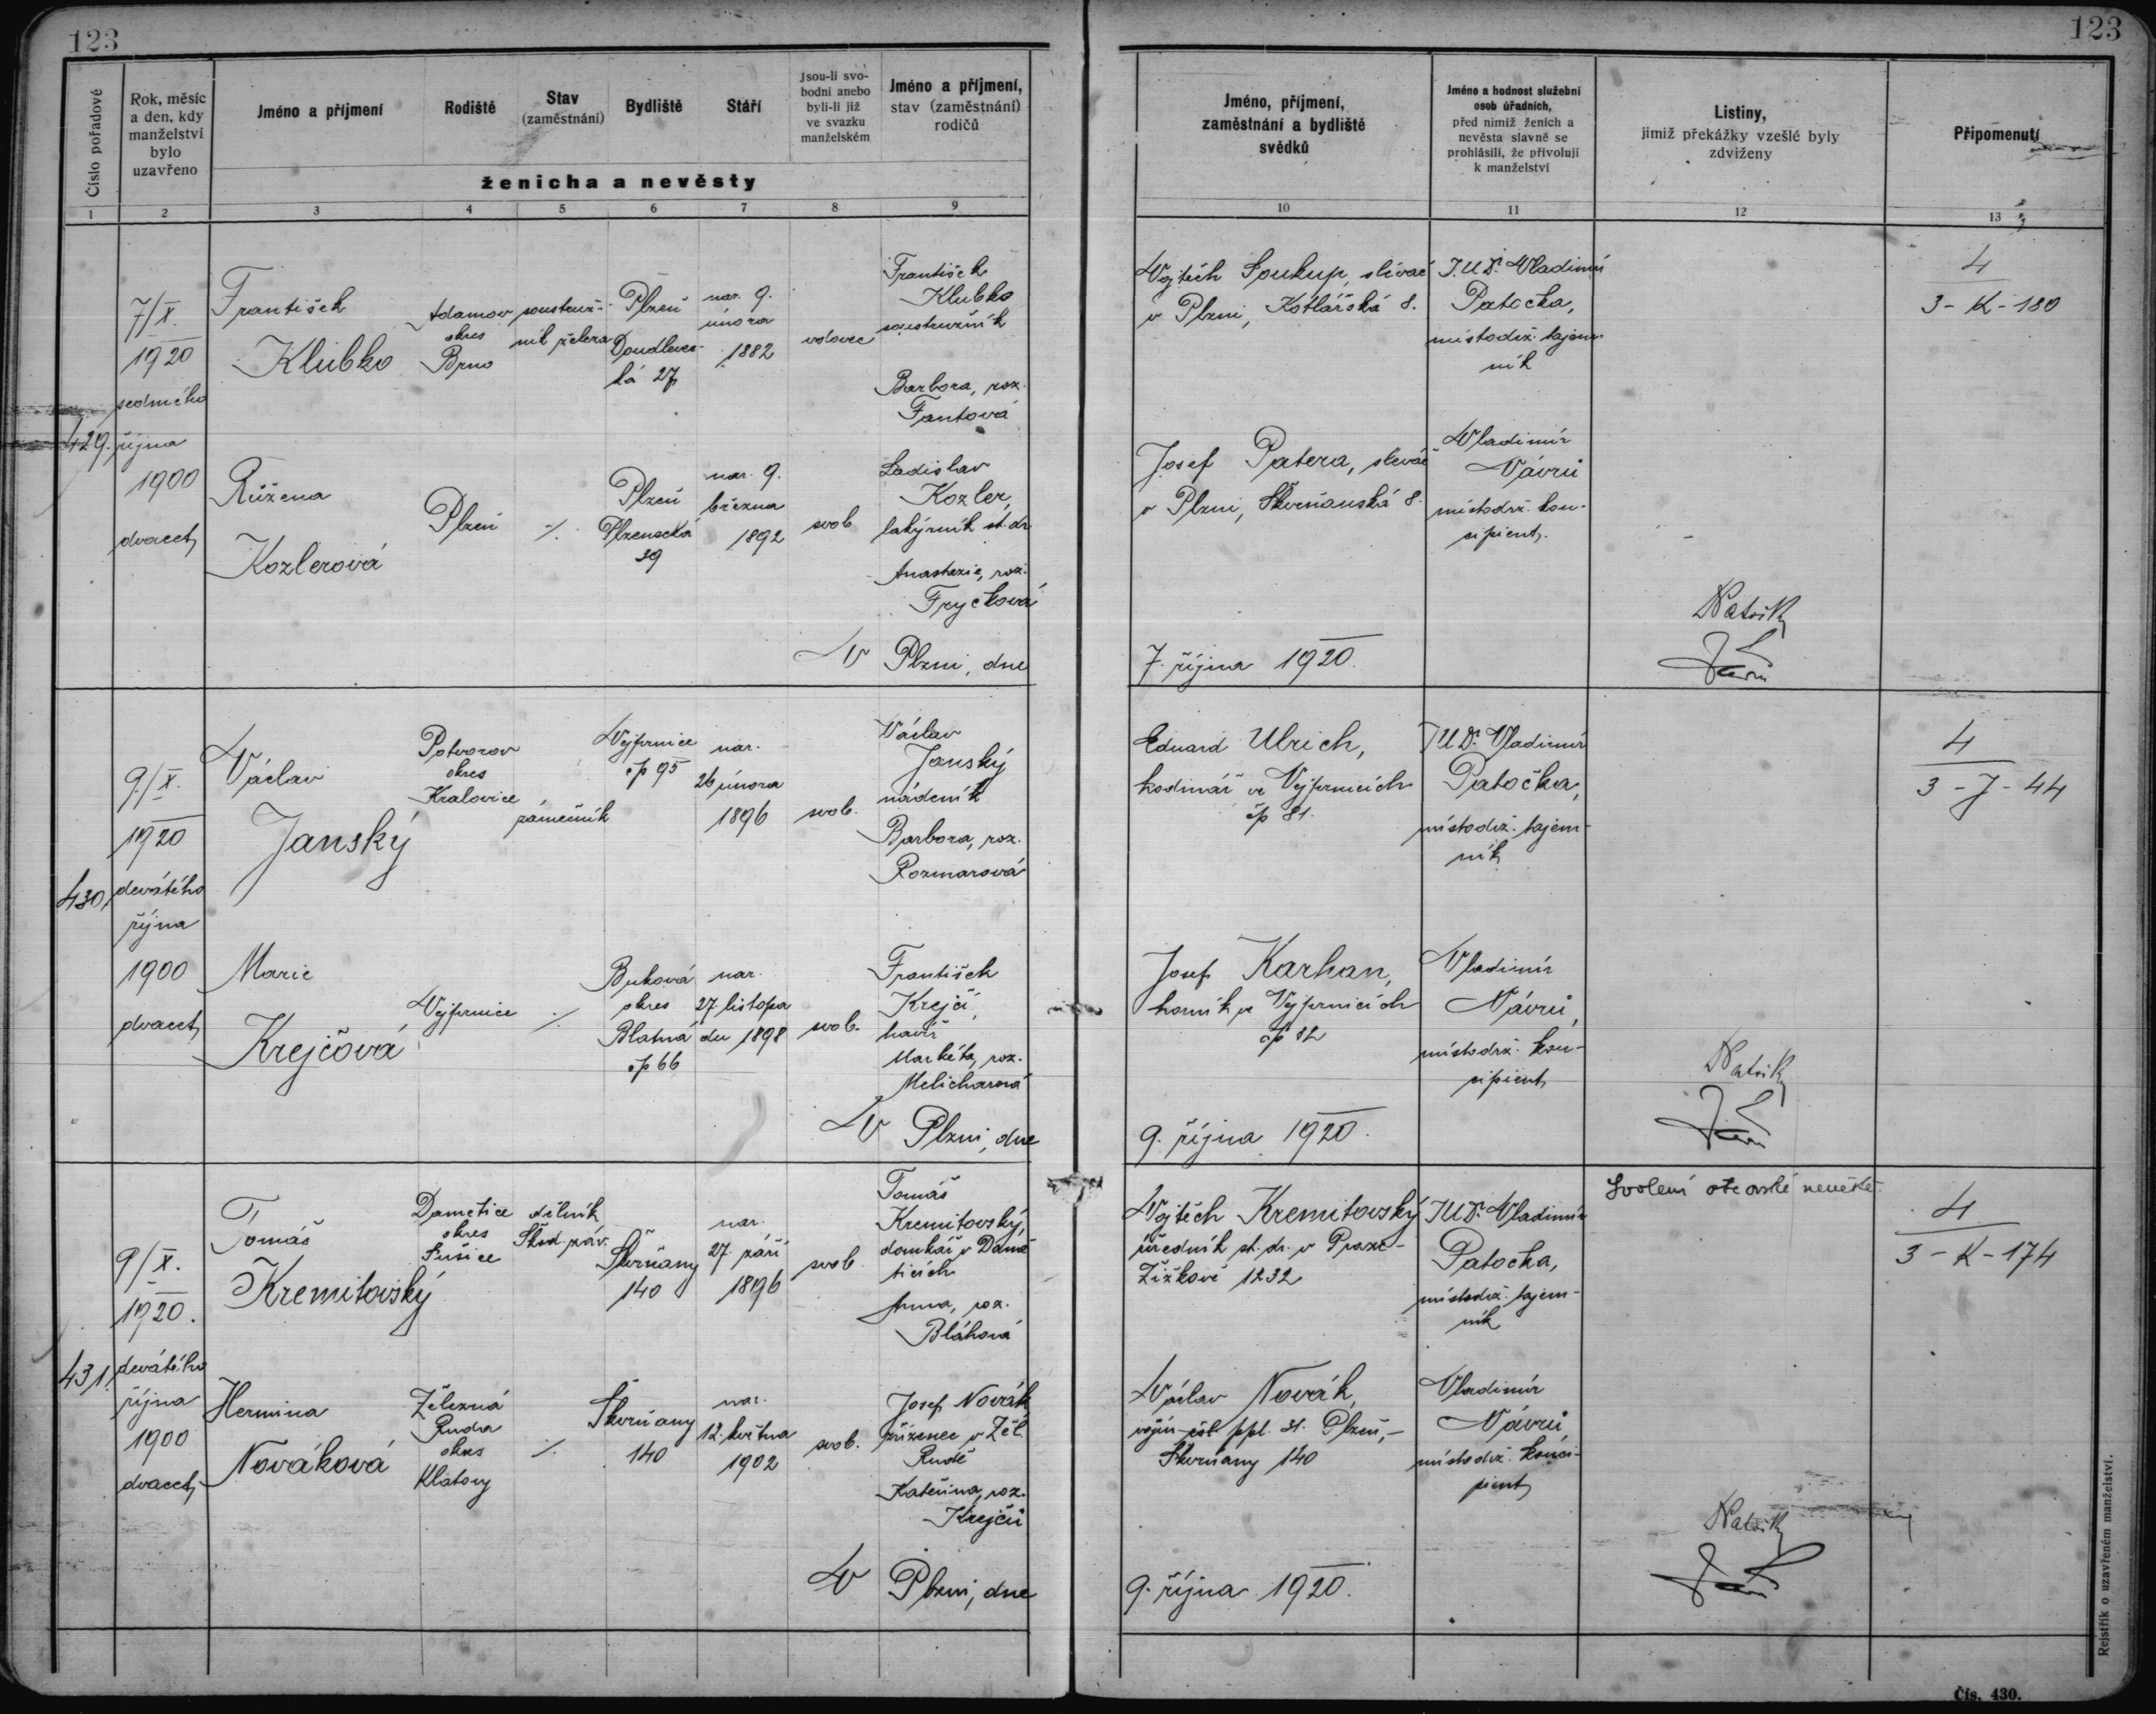 123
123
Číslo pořadové
Rok, měsíc
a den, kdy
manželství
bylo
uzavřeno
Jméno a příjmení
Rodiště
Stav
(zaměstnání)
Bydliště
Stáří
Jsou-li svo-
bodni anebo
byli-li již
ve svazku
manželském
Jméno a příjmení,
stav (zaměstnání)
rodičů
ženicha a nevěsty
Jméno, příjmení,
zaměstnání a bydliště
svědků
Jméno a hodnost služební
osob úřadních,
před nimiž ženich a
nevěsta slavně se
prohlásili, že přivolují
k manželství
Listiny,
jimiž překážky vzešlé byly
zdviženy
Připomenutí
1
2
3
4
5
6
7
8
9
10
11
12
13
429.
7/X.
1920
sedmého
října
1900
dvacet
František
Klubko
Adamov
okres
Brno
soustruž-
ník železa
Plzeň
Doudlevec-
ká 27
nar. 9.
února
1882
vdovec
František
Klubko
soustružník
Barbora, roz.
Fantová
Růžena
Kozlerová
Plzeň
./.
Plzeň
Plzenecká
29
nar. 9.
března
1892
svob
Ladislav
Kozler,
lakýrník st. dr.
Anastazie, roz.
Fryčková
V Plzni, dne
Vojtěch Soukup, slévač
v Plzni, Kotlářská 8.
Josef Patera, slevač
v Plzni, Skvrňanská 8.
7. října 1920.
J.U.Dr. Vladimír
Patočka,
místodrž. tajem-
ník
Vladimír
Návrů
místodrž. kon-
cipient.
4
3 - K - 180
430.
9/X.
1920
devátého
října
1900
dvacet
Václav
Janský
Potvorov
okres
Kralovice
zámečník
Vejprnice
čp 95
nar.
26 února
1896
svob.
Václav
Janský
nádeník
Barbora, roz.
Rozmarová
Marie
Krejčová
Vejprnice
./.
Buková
okres
Blatná
čp 66
nar.
27. listopa
du 1898
svob.
František
Krejčí,
havíř
Markéta, roz.
Melicharová
V Plzni, dne
Eduard Ulrich,
hodinář ve Vejprnicích
čp 81.
Josef Karhan,
horník ve Vejprnicích
čp 82
9. října 1920.
JUDr. Vladimír
Patočka,
místodrž. tajem-
ník
Vladimír
Návrů,
místodrž. kon-
cipient
4
3 - J - 44
431.
9/X.
1920.
devátého
října
1900
dvacet
Tomáš
Kremitovský
Dametice
okres
Sušice
dělník
Škod. záv.
Skvrňany
140
nar.
27. září
1896
svob
Tomáš
Kremitovský,
domkář v Dame
ticích
Anna, roz.
Bláhová
Hermina
Nováková
Železná
Ruda
okres
Klatovy
./.
Skvrňany
140
nar.
12. května
1902
svob.
Josef Novák
zřízenec v Žel.
Rudě
Kateřina, roz.
Krejčů
V Plzni, dne
Vojtěch Kremitovský
úředník st. dr. v Praze-
Žižkově 1232
Václav Novák,
vojín ppl. 31. Plzeň,-
Skvrňany 140
9. října 1920.
JUDr. Vladimír
Patočka,
místodrž. tajem-
ník
Vladimír
Návrů,
místodrž. konci-
pient
Svolení otcovské nevěstě.
4
3 - K - 174
Rejstřík o uzavřeném manželství.
Čís. 430.